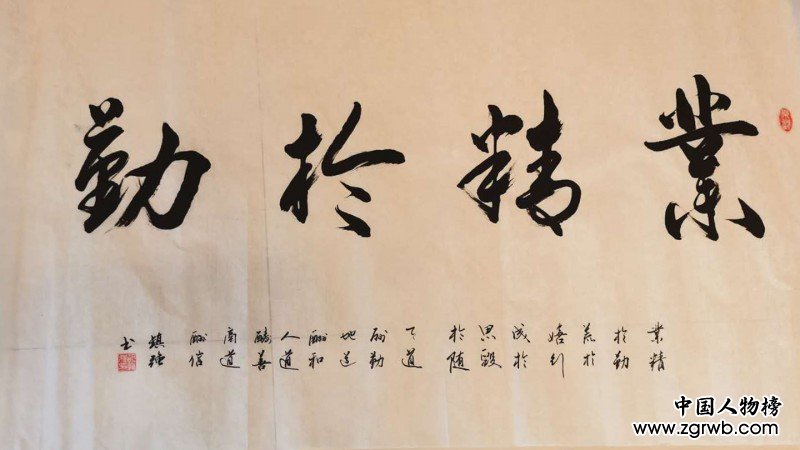 業精於勤
業精
於勤
荒於
嬉行
成於
思毀
於随
天道
酬勤
地道
酬和
人道
酬善
商道
酬信
鎮強
书
中国人物榜
www.zgrwb.com